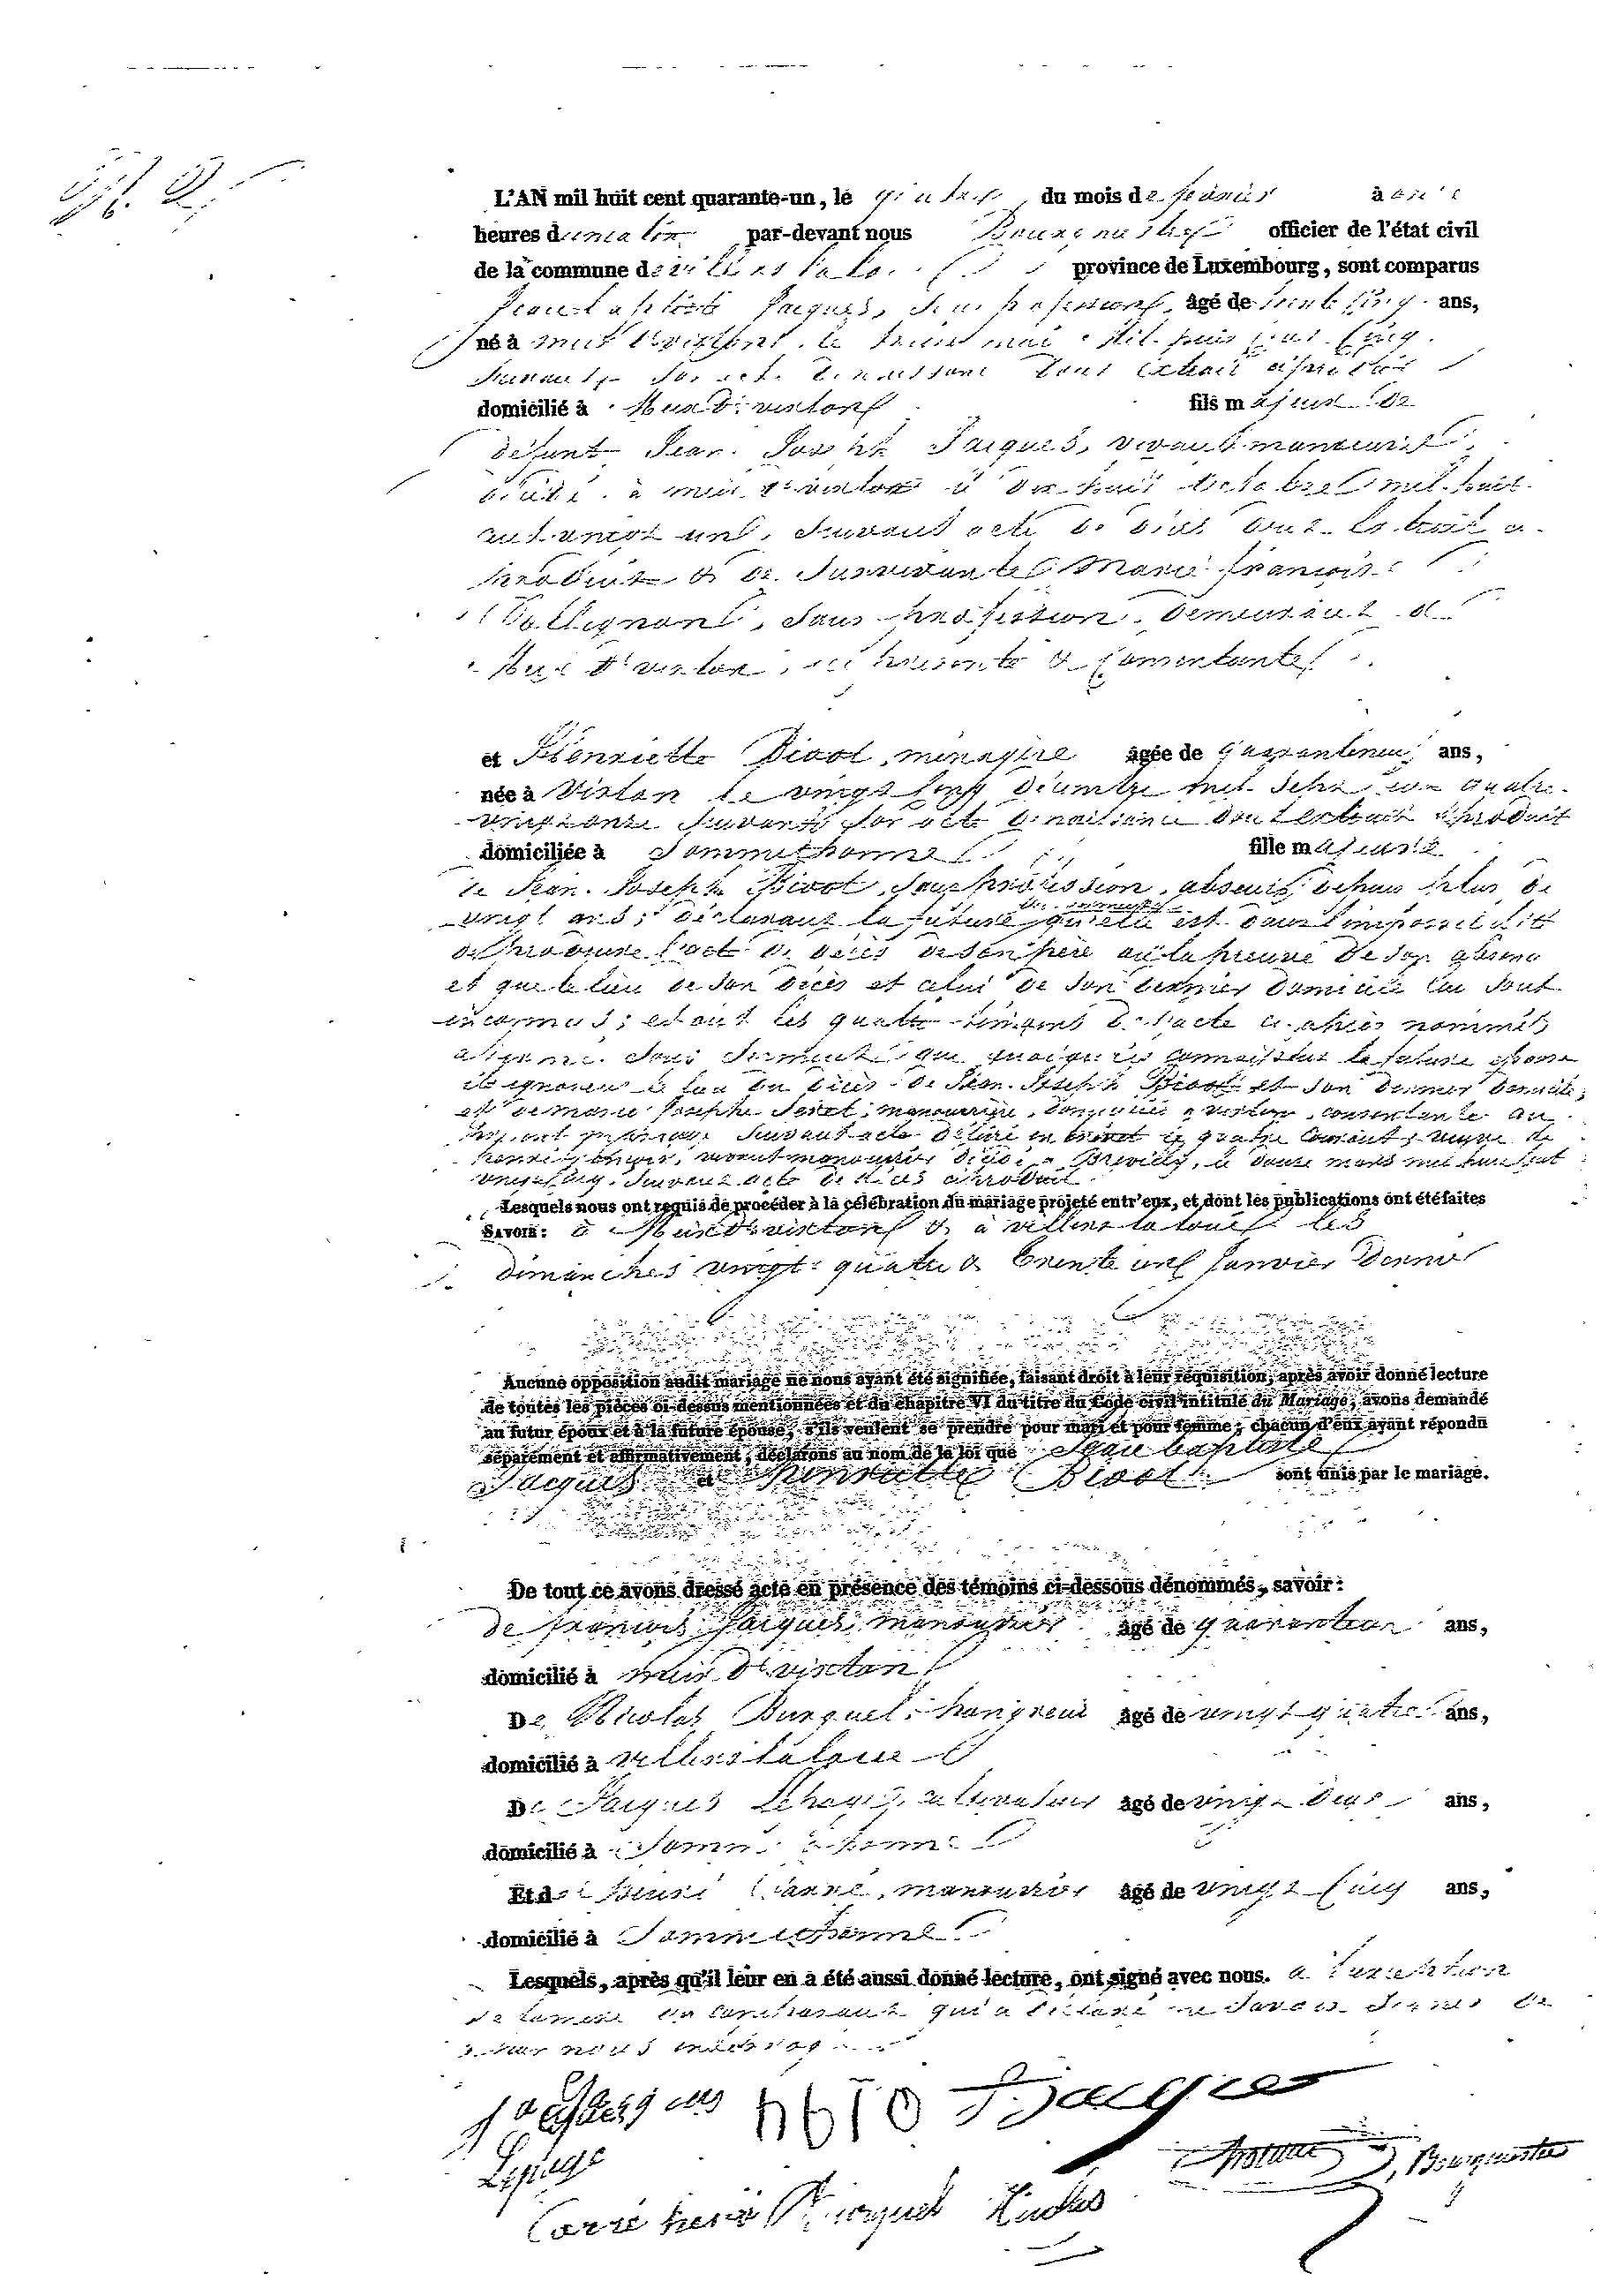 L'AN mil huit cent quarante-un, le du mois de février à onze
heures du matin par-devant nous Bourguostre officier de l'état civil
de la commune de villers la loue province de Luxembourg, sont comparus
Jean baptiste Jacques, sans profession, âgé de trente cinq ans,
né à meix devt virton, le mai mil huit cent cinq
suivant son acte de naissance dont extrait a produit
domicilié à Meix dt virton fils majeur de
défunt Jean Joseph Jacques, vivant manouvrier
décédé à meix dt virton le dix huit octobre mil huit
cent vingt un, suivant acte de décès dont extrait a
produit & de survivante Marie françoise
Collignon, sans profession, demeurant à
Meix dt virton, ici présente & consentante
et Henriette Bivot, ménagère âgée de quarante neuf ans,
née à Virton le vingt cinq décembre mil sept cent quatre
vingt onze suivant son acte de naissance dont extrait a produit
domiciliée à Sommethonne fille majeure
de Jean Joseph Bivot, sans profession, absent depuis plus de
vingt ans; déclarant la future qu'elle est dans l'impossibilité
de produire l'acte de décès de son père ou la preuve de son absence
et que le lieu de son décès et celui de son dernier domicile lui sont
inconnus; et ont les quatre témoins de l'acte ci-après nommés
affirmé sous serment que quoiqu'ils connaissent la future épouse
ils ignorent le lieu du décès de Jean Joseph Bivot et son dernier domicile;
et de marie Josephe Seret, manouvrière, domiciliée à virton, consentante au
présent mariage suivant acte délivré en brevet le quatre courant; veuve de
henri, vivant manouvrier décédé à Breville, le douze mars mil huit cent
vingt cinq, suivant acte de décès a produit.
Lesquels nous ont requis de procéder à la célébration du mariage projeté entr'eux, et dont les publications ont été faites
SAVOIR: à Meix dt virton & à villers la loue les
dimanches vingt quatre & trente un Janvier dernier
Aucune opposition audit mariage ne nous ayant été signifiée, faisant droit à leur réquisition, après avoir donné lecture
de toutes les pièces ci-dessus mentionnées et du chapitre VI du titre du Code civil intitulé du Mariage, avons demandé
au futur époux et à la future épouse, s'ils veulent se prendre pour mari et pour femme; chacun d'eux ayant répondu
séparément et affirmativement, déclarons au nom de la loi que Jean baptiste
Jacques et Henriette Bivot sont unis par le mariage.
De tout ce avons dressé acte en présence des témoins ci-dessous dénommés, savoir:
de françois Jacques, manouvrier âgé de quarante ans,
domicilié à meix dt virton
De Nicolas Burquel, âgé de vingt quatre ans,
domicilié à villers la loue
De Jacques Lepage, cultivateur âgé de vingt deux ans,
domicilié à Sommethonne
Et de henri Carré, manouvrier âgé de vingt cinq ans,
domicilié à Sommethonne
Lesquels, après qu'il leur en a été aussi donné lecture, ont signé avec nous. a l'exception
de la mère du comparant qui a déclaré ne savoir signer de
ce par nous interpellée
Jacques Jacques
Lepage Bourguostre
Carré henri Burquel Nicolas